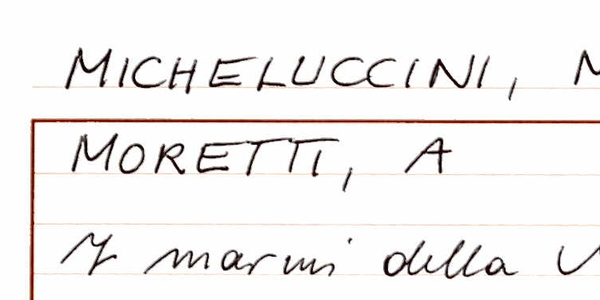 MICHELUCCINI, M
MORETTI, A
I marmi della V